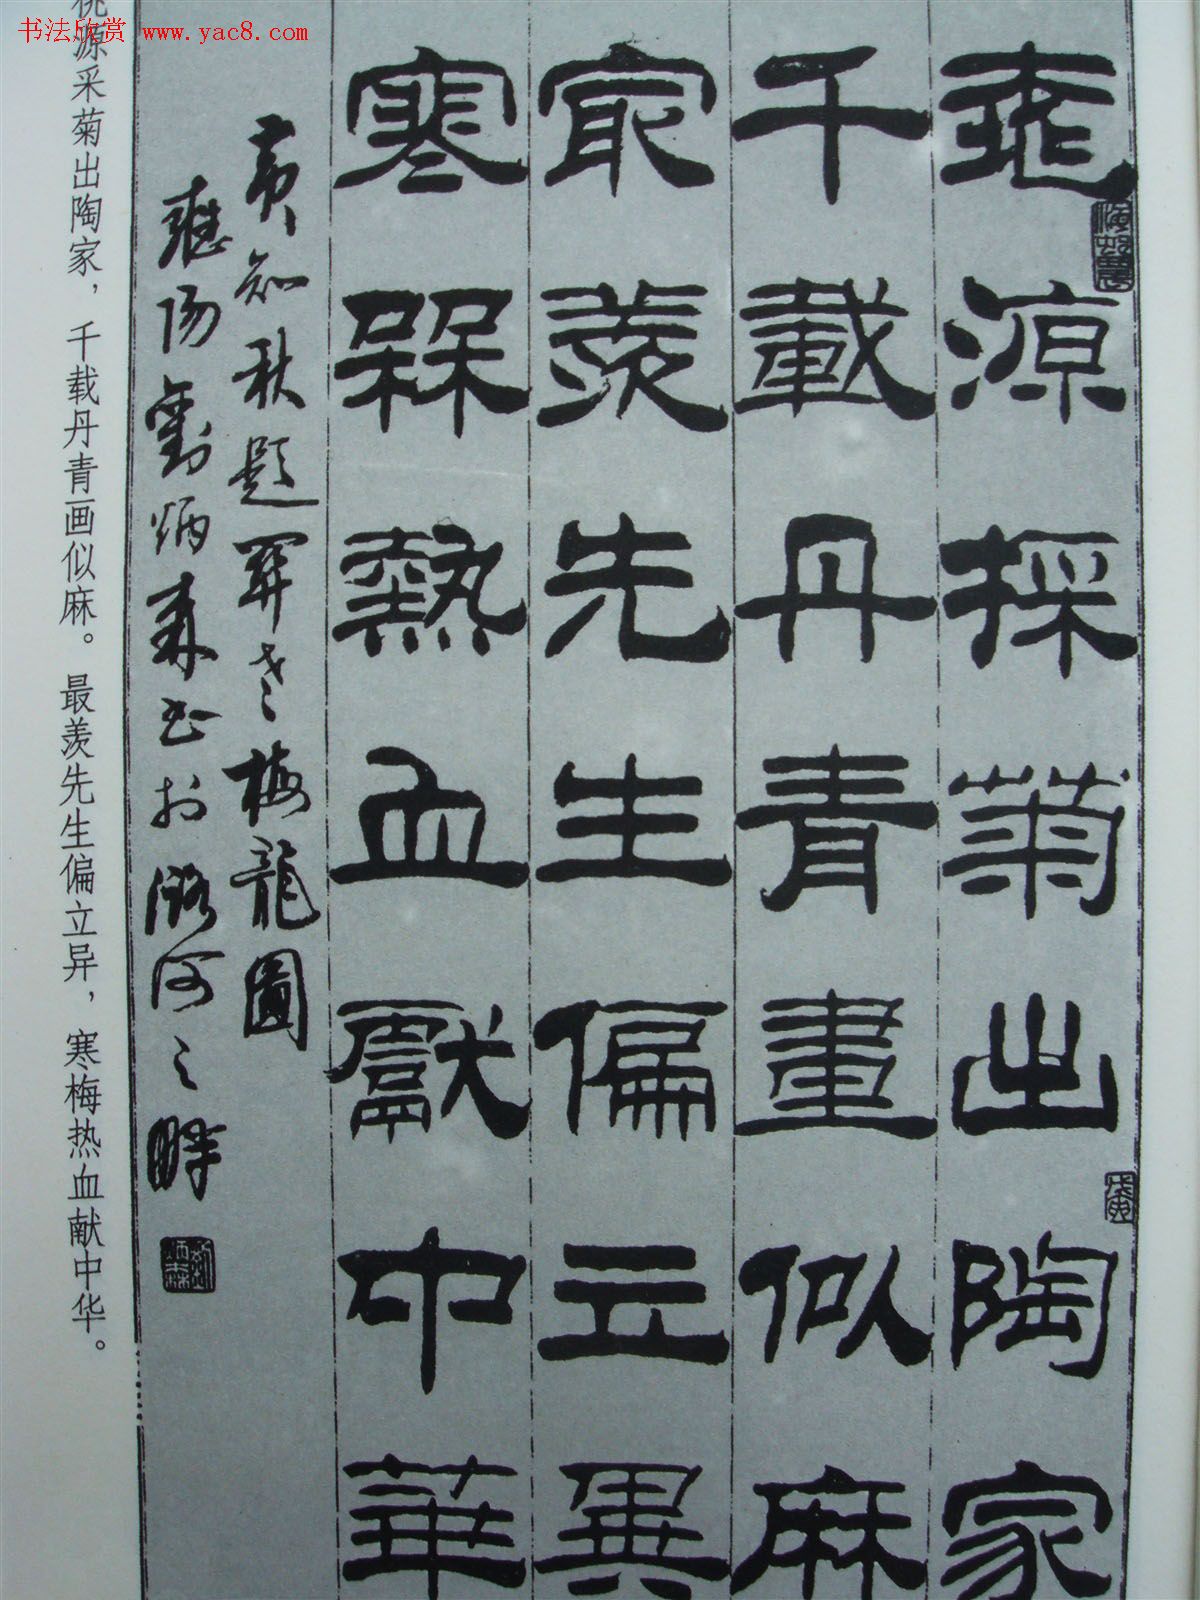 书法欣赏 www.yac8.com
桃源採菊出陶家
千載丹青畫似麻
最羨先生偏立異
寒槑熱血獻中華
黄知秋题關老梅龍圖
應陽劉炳森書於潞河之畔
桃源采菊出陶家，千载丹青画似麻。最羡先生偏立异，寒梅热血献中华。
戊寅